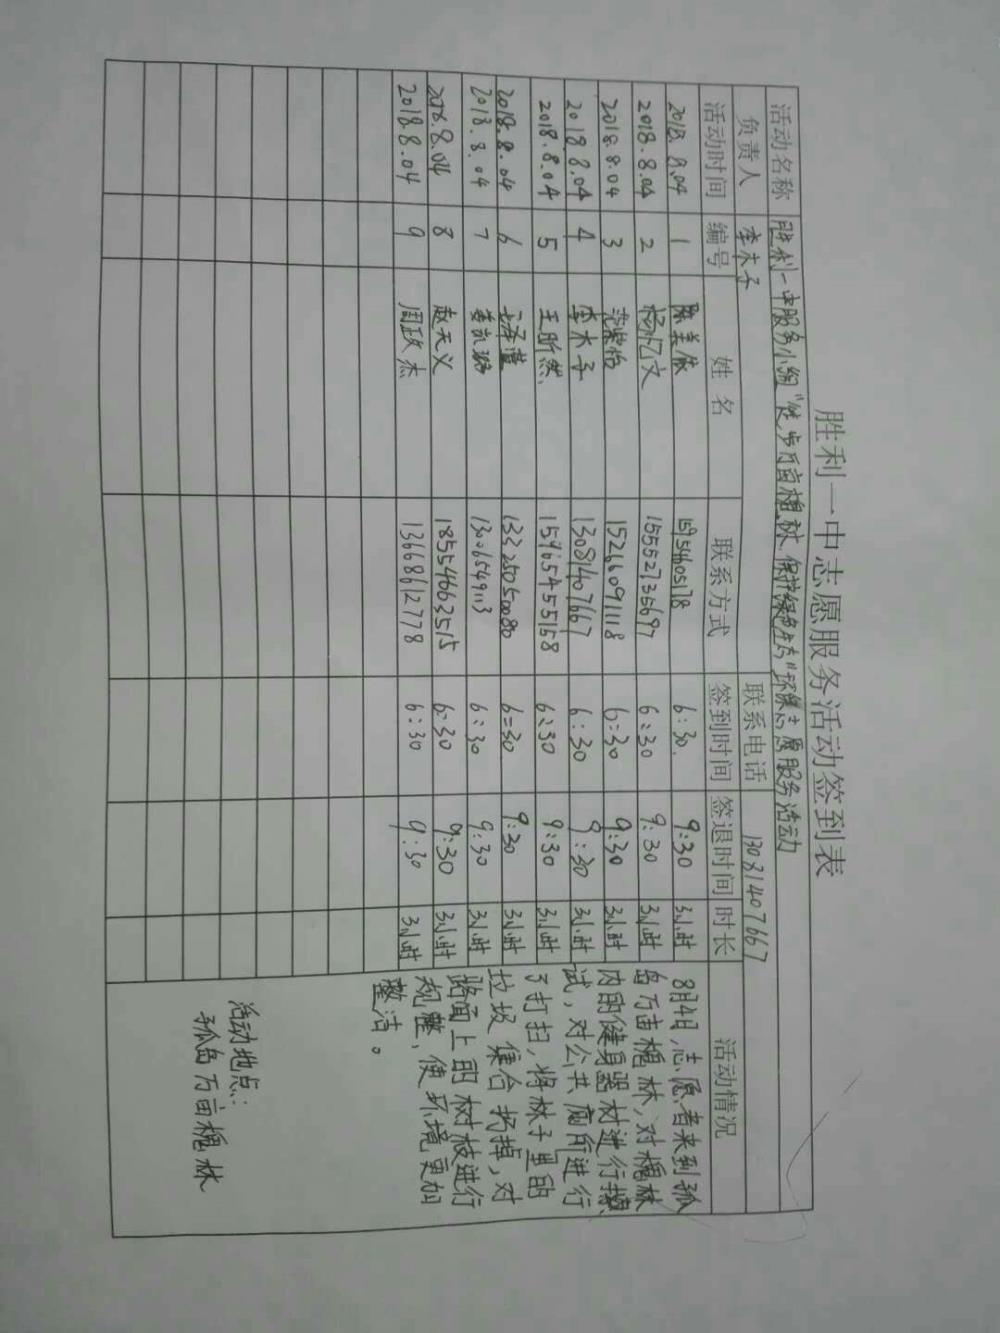 胜利一中志愿服务活动签到表
活动名称 胜利一中服务小组“徒步万亩槐林，保护绿色生态”环保志愿服务活动
负责人 李木子 联系电话 13081407667
活动时间 编号 姓名 联系方式 签到时间 签退时间 时长 活动情况
2018.8.04 1 陈美依 15954605178 6:30 9:30 3小时
2018.8.04 2 杨忆文 15552735697 6:30 9:30 3小时
2018.8.04 3 范紫怡 15266091118 6:30 9:30 3小时
2018.8.04 4 李木子 13081407667 6:30 9:30 3小时
2018.8.04 5 王昕然 15965455158 6:30 9:30 3小时
2018.8.04 6 13325050080 6:30 9:30 3小时
2018.8.04 7 13006549113 6:30 9:30 3小时
2018.8.04 8 赵天义 18554663515 6:30 9:30 3小时
2018.8.04 9 周政杰 13668612778 6:30 9:30 3小时
8月4日,志愿者来到孤
岛万亩槐林,对槐林
内的健身器材进行擦
试,对公共厕所进行
了打扫,将林子里的
垃圾集合扔掉,对
路面上的树枝进行
规整,使环境更加
整洁。
活动地点:
孤岛万亩槐林